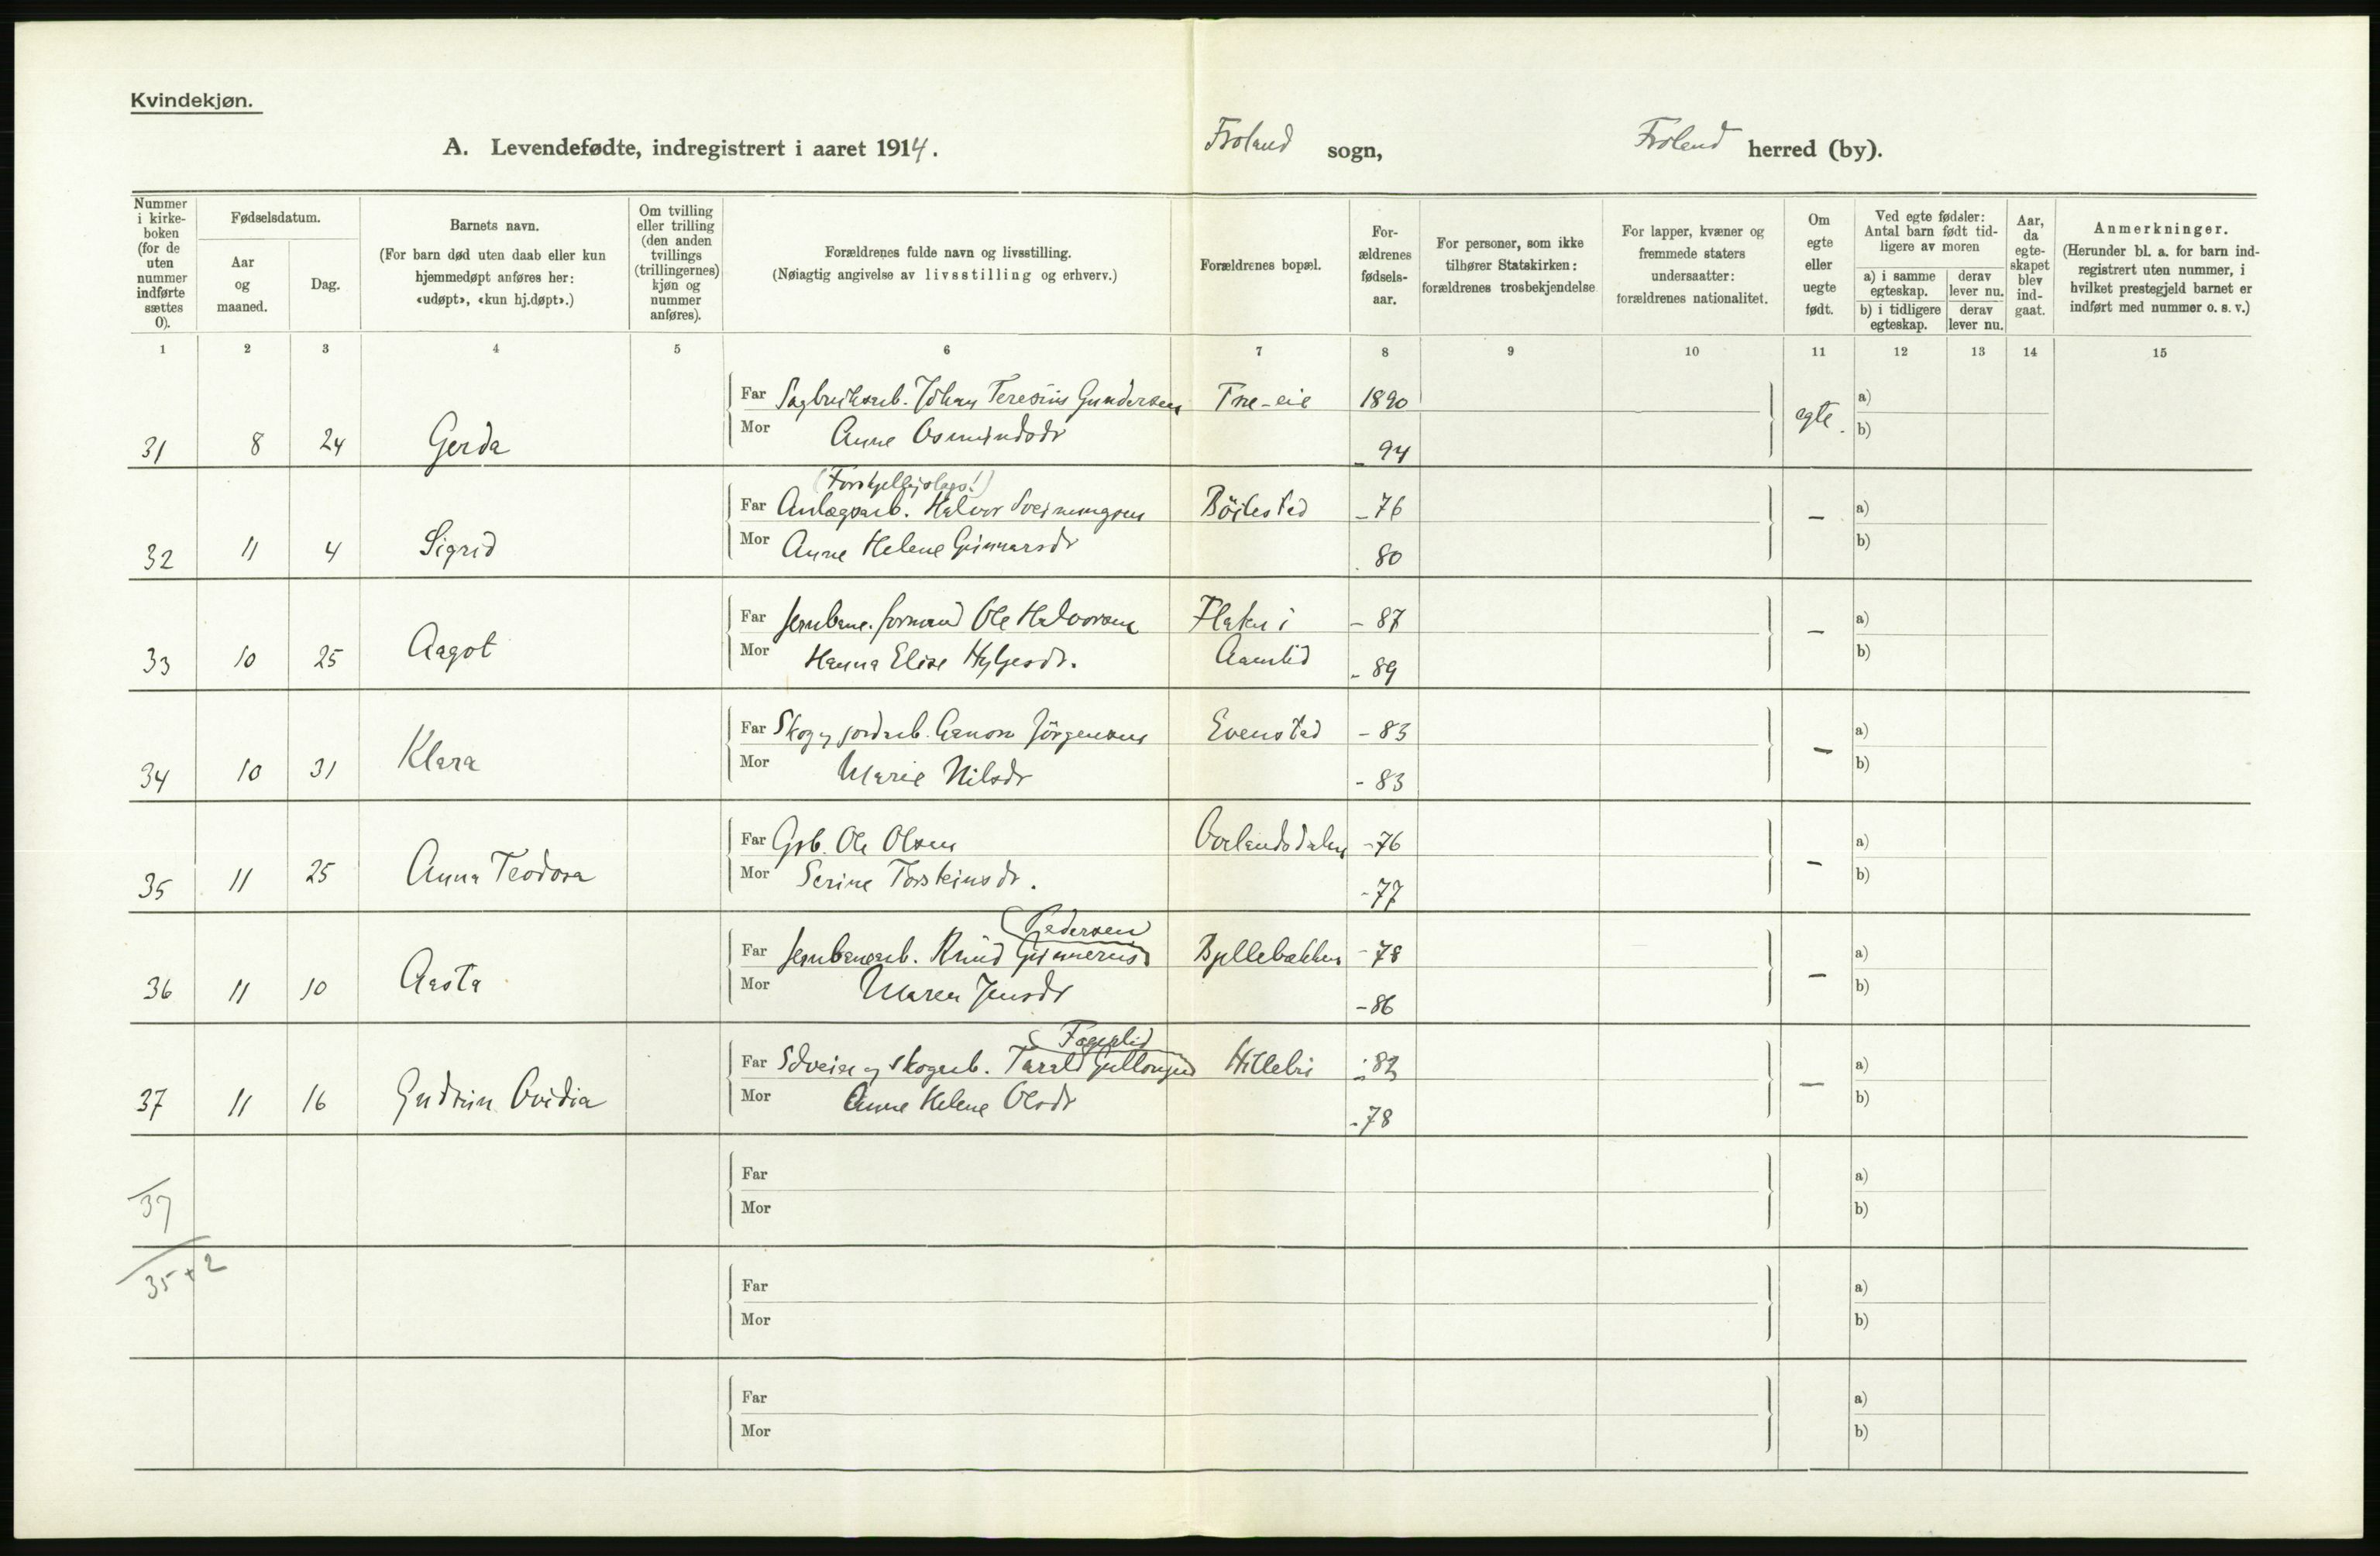 Kvindekjøn.
A. Levendefødte, indregistrert i aaret 1914.
Froland sogn, Froland herred (by).
Nummer i kirkeboken (for de uten nummer indførte sættes 0).
Fødselsdatum.
Aar og maaned.
Dag.
Barnets navn.
(For barn død uten daab eller kun hjemmedøpt anføres her: «udøpt», «kun hj.døpt».)
Om tvilling eller trilling (den anden tvillings (trillingernes) kjøn og nummer anføres).
Forældrenes fulde navn og livsstilling.
(Nøiagtig angivelse av livsstilling og erhverv.)
Forældrenes bopæl.
For-
ældrenes
fødsels-
aar.
For personer, som ikke
tilhører Statskirken:
forældrenes trosbekjendelse
For lapper, kvæner og
fremmede staters
undersaatter:
forældrenes nationalitet.
Om
egte
eller
uegte
født.
Ved egte fødsler:
Antal barn født tid-
ligere av moren
a) i samme egteskap.
derav lever nu.
b) i tidligere egteskap.
derav lever nu.
Aar,
da
egte-
skapet
blev
ind-
gaat.
Anmerkninger.
(Herunder bl. a. for barn ind-
registrert uten nummer, i
hvilket prestegjeld barnet er
indført med nummer o. s. v.)
1 2 3 4 5 6 7 8 9 10 11 12 13 14 15
Far Sagbruksarb. Johan Teresius Gundersen 1890 a)
31 8 24 Gerda Mor Anne Osmundsdr - 94 egte. b)
Far Anlægsarb. Halvor Sveinungsen Böilestad - 76 - a)
32 11 4 Sigrid Mor Anne Helene Gunnarsdr 80 b)
Far Jernbane.formand Ole Halvorsen i - 87 - a)
33 10 25 Aagot Mor Hanna Elise Aamlid - 89 b)
Far Skog og jordarb. Jörgensen Evenstad - 83 - a)
34 10 31 Klara Mor Marie Nilsdr - 83 b)
Far Gsb. Ole Olsen - 76 - a)
35 11 25 Anna Teodora Mor Serine Torsteinsdr. - 77 b)
Pedersen
Far Jernbanearb. Knud - 78 - a)
36 11 10 Aasta Mor Maren Jensdr - 86 b)
Fagerlid
Far Selveier og skogarb. Tarald - 82 - a)
37 11 16 Gudrun Ovidia Mor Anne Helene Olsdr - 78 b)
37 Far a)
Mor b)
35 + 2 Far a)
Mor b)
Far a)
Mor b)